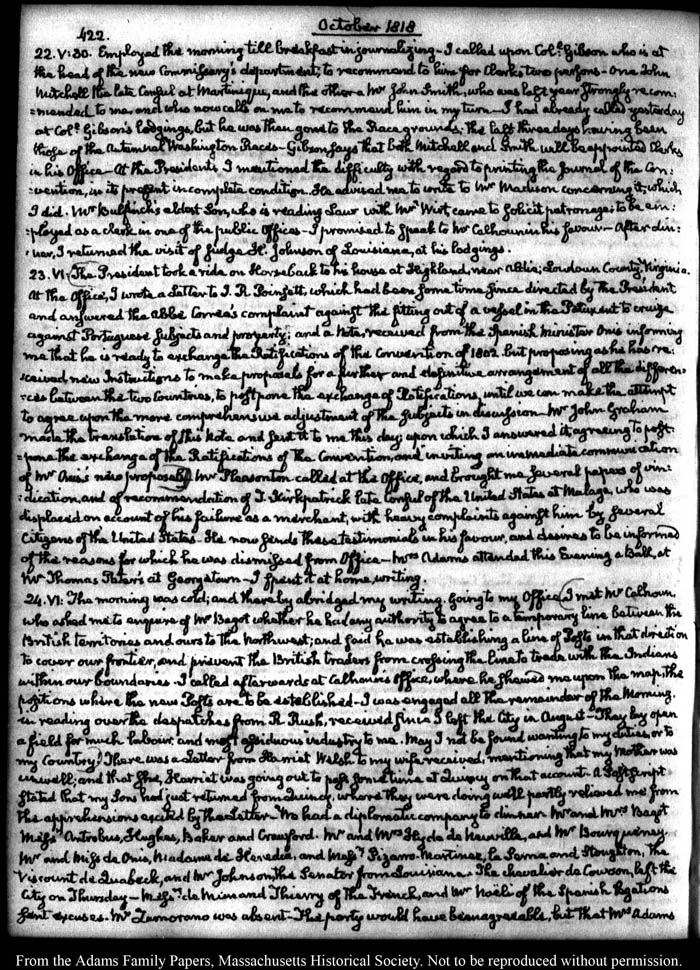 422.
October 1818
22. V:30. Employed the morning till breakfast in journalizing – I called upon Col.l Gibson who is at
the head of the new Commissary's department, to recommend to him for Clerks two persons – One John
Mitchell the late Consul at Martinique, and the other a Mr John Smith, who was last year strongly recom:
:mended to me, and who now calls on me to recommend him in my turn – I had already called yesterday
at Col.l Gibson's lodgings, but he was then gone to the Race grounds; the last three days having been
those of the Autumnal Washington Races – Gibson says that both Mitchell and Smith will be appointed Clerks
in his Office – At the President's I mentioned the difficulty with regard to printing the Journal of the Con:
:vention, in its present incomplete condition. He advised me to write to Mr Madison concerning it, which
I did. Mr Bulfinch's eldest Son, who is reading Law with Mr Wirt, came to solicit patronage; to be em:
:ployed as a clerk in one of the public Offices – I promised to speak to Mr Calhoun in his favour – After din:
:ner, I returned the visit of Judge H. Johnson of Louisiana, at his lodgings.
23. VI: The President took a ride on Horseback to his house at Highland, near Aldie; Loudoun County, Virginia.
At the Office, I wrote a Letter to J. R. Poinsett, which had been some time since directed by the President
and answered the Abbé Correa's complaint against the fitting out of a vessel in the Patuxent to cruize
against Portuguese Subjects and property; and a Note, received from the Spanish Minister Onis informing
me that he is ready to exchange the Ratifications of the Convention of 1802. but proposing as he has re:
:ceived new Instructions to make proposals for a further and definitive arrangement of all the differen:
:ces between the two Countries, to postpone the exchange of Ratifications, until we can make the attempt
to agree upon the more comprehensive adjustment of the Subjects in discussion – Mr John Graham
made the translation of this Note and sent it to me this day; upon which I answered it, agreeing to post:
:pone the exchange of the Ratifications of the Convention, and inviting an immediate communication
of Mr Onis's new proposals. Mr Pleasonton called at the Office, and brought me several papers of vin:
:dication, and of recommendation of T. Kirkpatrick late Consul of the United States at Malaga, who was
displaced on account of his failure as a merchant, with heavy complaints against him by several
Citizens of the United States – He now sends these testimonials in his favour, and desires to be informed
of the reasons for which he was dismissed from Office – Mrs Adams attended this Evening a Ball, at
Mr Thomas Peter's at Georgetown – I spent it at home, writing.
24. VI: The morning was cold; and thereby abridged my writing. Going to my Office, I met Mr Calhoun
who asked me to enquire of Mr Bagot whether he had any authority to agree to a temporary line between the
British territories and ours to the Northwest; and said he was establishing a line of Posts in that direction
to cover our frontier, and prevent the British traders from crossing the line to trade with the Indians
within our boundaries – I called afterwards at Calhoun's Office, where he shewed me upon the map, the
positions where the new Posts are to be established – I was engaged all the remainder of the Morning.
in reading over the despatches from R. Rush, received since I left the City in August – They lay open
a field for much labour and most assiduous industry to me. May I not be found wanting to my duties, or to
my Country! There was a Letter from Harriet Welsh to my wife received, mentioning that my Mother was
unwell; and that she, Harriet was going out to pass some time at Quincy on that account. A Postscript
stated that my Sons had just returned from Quincy, where they were doing well partly relieved me from
the apprehensions excited by the Letter – We had a diplomatic company to dinner. Mr and Mrs Bagot
Mess.rs Antrobus, Hughes, Baker and Crawford. Mr and Mrs Hyde de Neuville, and Mr Bourqueney.
Mr and Miss de Onis, Madame de Heredia, and Mess.rs Pizarro Martinez, la Serna and Stoughton, the
Viscount de Quabeck, and Mr Johnson, the Senator from Louisiana. The chevalier de Correa, left the
City on Thursday – Mess.rs de Mun and Thierry of the French, and Mr Noeli of the Spanish legations
sent excuses. Mr Zamorano was absent – The party would have been agreeable, but that Mrs Adams
From the Adams Family Papers, Massachusetts Historical Society. Not to be reproduced without permission.